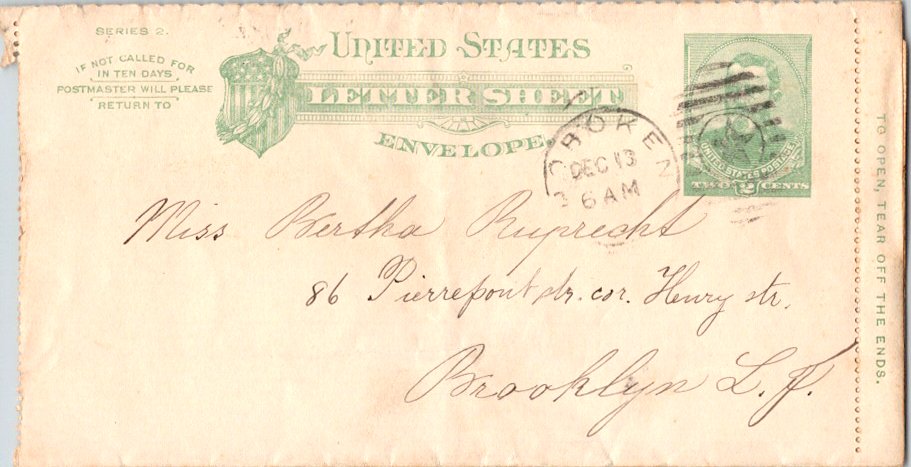 SERIES 2.
IF NOT CALLED FOR
IN TEN DAYS
POSTMASTER WILL PLEASE
RETURN TO
UNITED STATES
LETTER SHEET
ENVELOPE.
HOBOKEN
DEC 13
6 AM
UNITED STATES POSTAGE
TWO 2 CENTS
TO OPEN, TEAR OFF THE ENDS.
Miss Bertha Ruprecht
86 Pierrepont str. cor. Henry str.
Brooklyn L. I.